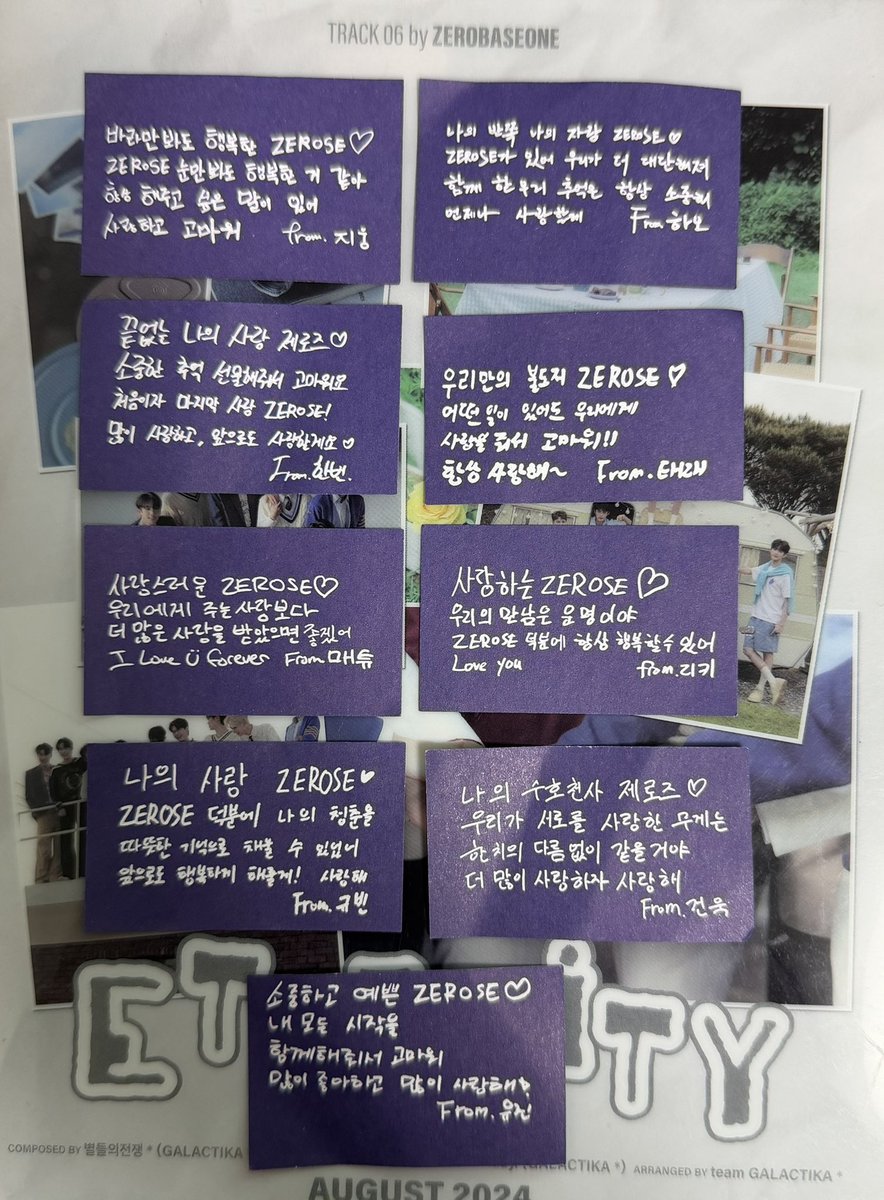 TRACK 06 by ZEROBASEONE
바라만 봐도 행복한 ZEROSE♡
ZEROSE 눈만 봐도 행복한 거 같아
항상 해주고 싶은 말이 있어
사랑하고 고마워 from. 지웅
나의 반쪽 나의 자랑 ZEROSE♡
ZEROSE가 있어 우리가 더 대단해져
함께 한 우리 추억은 항상 소중해
언제나 사랑할게 From. 하오
끝없는 나의 사랑 제로즈♡
소중한 추억 선물해줘서 고마워요
처음이자 마지막 사랑 ZEROSE!
많이 사랑하고, 앞으로도 사랑할게요♡
From. 한빈.
우리만의 불도지 ZEROSE♡
어떤 일이 있어도 우리에게
사랑을 줘서 고마워!!
항상 사랑해~ From. 태래
사랑스러운 ZEROSE♡
우리에게 주는 사랑보다
더 많은 사랑을 받았으면 좋겠어
I Love U forever From 매튜
사랑하는 ZEROSE♡
우리의 만남은 운명이야
ZEROSE 덕분에 항상 행복할 수 있어
Love you from. 리키
나의 사랑 ZEROSE♥
ZEROSE 덕분에 나의 청춘을
따뜻한 기억으로 채울 수 있었어
앞으로도 행복하게 해줄게! 사랑해
From. 규빈
나의 수호천사 제로즈♡
우리가 서로를 사랑한 무게는
한치의 다름없이 같을거야
더 많이 사랑하자 사랑해
From. 건욱
소중하고 예쁜 ZEROSE♡
내 모든 시작을
함께해줘서 고마워
많이 좋아하고 많이 사랑해!
From. 유진
COMPOSED BY 별들의전쟁 * (GALACTIKA
(GALACTIKA *) ARRANGED BY team GALACTIKA *
AUGUST 2024